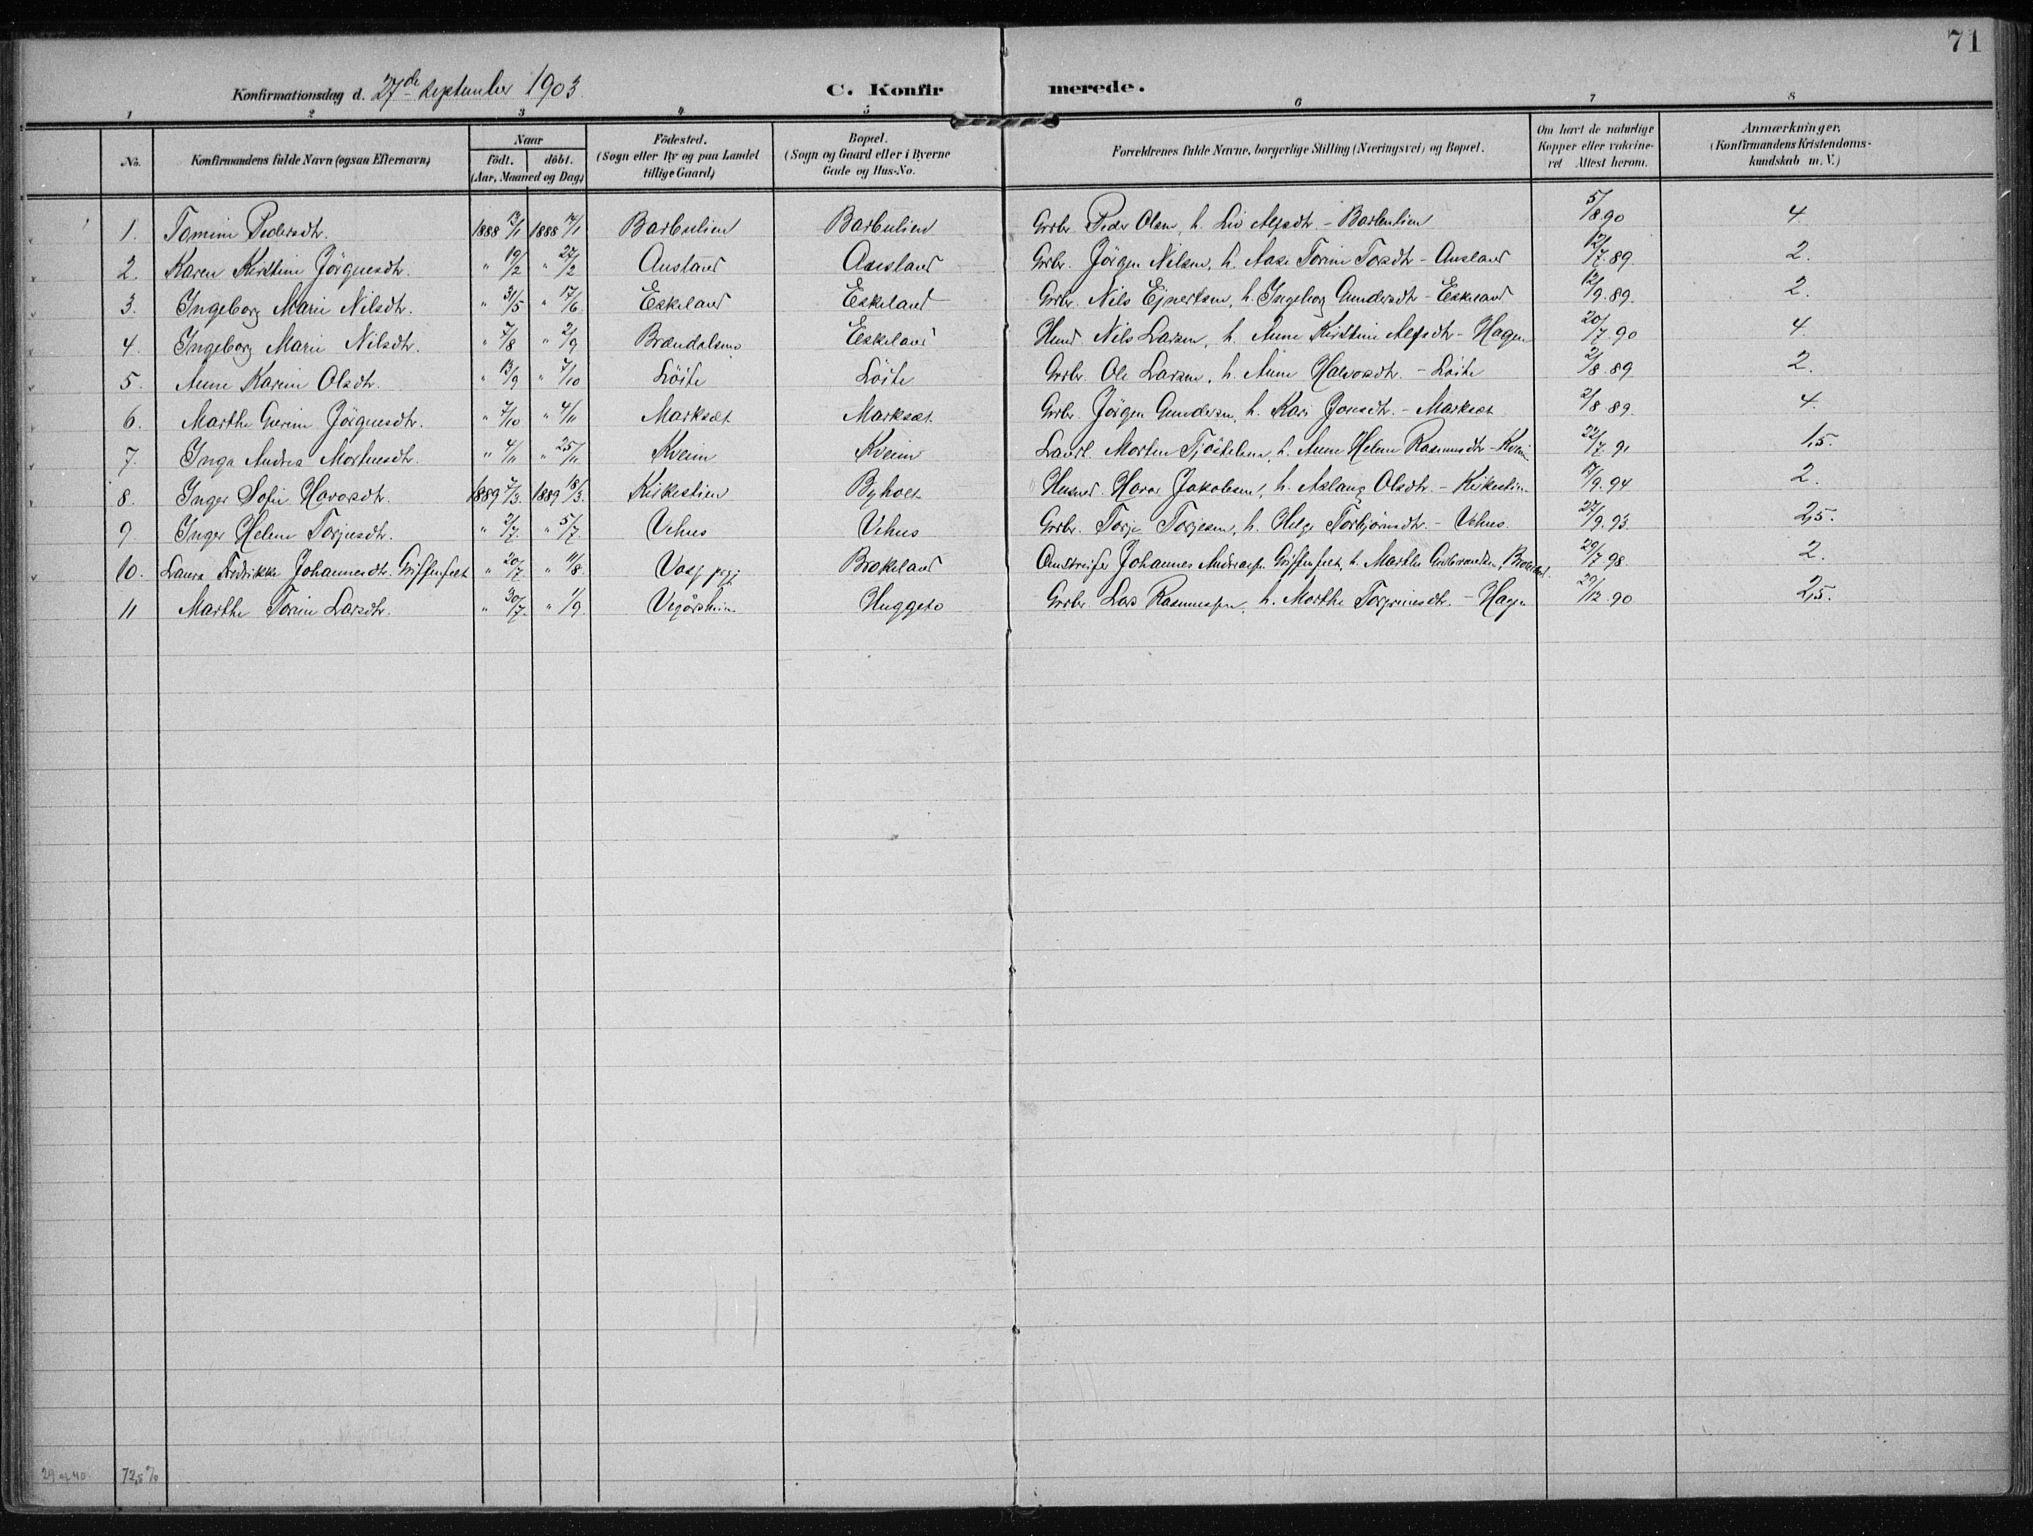 71
Konfirmationsdag d. 27de September 1903. C. Konfirmerede.
1 2 3 4 5 6 7 8
No. Konfirmandens fulde Navn (ogsaa Efternavn) Naar födt. döbt. (Aar, Maaned og Dag) Födested. (Sogn eller By og paa Landet tillige Gaard) Bopæl. (Sogn og Gaard eller i Byerne Gade og Hus-No. Forældrenes fulde Navne, borgerlige Stilling (Næringsvei) og Bopæl. Om havt de naturlige Kopper eller vakcineret Attest herom. Anmærkninger. (Konfirmandens Kristendomskundskab m. V.)
1. Tomine Pedersdtr. 1888 13/1 1888 17/1 Barbulien Barbulien Grbr. Peder Olsen, h. Liv Alfsdtr – Barbulien 5/8 90 4.
2. Karen Kirstine Jörgensdtr. " 19/2 " 27/2 Ausland Ausland Grbr. Jörgen Nilsen, h. Aase Torine Torsdtr – Ausland 12/7 89 2.
3. Ingeborg Marie Nilsdtr. " 31/5 " 17/6 Eskeland Eskeland Grbr. Nils Ejvertsen, h. Ingeborg Gundersdtr – Eskeland 12/9. 89. 2.
4. Ingeborg Marie Nilsdtr. " 7/8 " 2/9 Brændalsmo Eskeland Nils Larsen, h. Anne Kirstine Alfsdtr – Hagen 20/7. 90 4.
5. Anne Karine Olsdtr. " 13/9 " 7/10 Löite Löite Grbr. Ole Larsen, h. Anne Halvorsdtr. – Löite 2/8 89 2.
6. Marthe Gurine Jörgensdtr. " 7/10 " 4/11 Marksæt Marksæt. Grbr. Jörgen Gundersen, h. Kari Jonsdtr. – Marksæt 2/8 89. 4.
7. Inga Andrea Mortensdtr. " 4/11 " 25/11 Kveim Kveim Morten Tjöstelsen, h. Anne Helene Rasmusdtr – Kveim 22/7. 91 1,5.
8. Inger Sofie Havorsdtr. 1889 7/3. 1889 18/3. Kirkestien Byholt Husmd. Havor Jakobsen, h. Aslaug Olsdtr. – Kirkestien 17/9. 94 2.
9. Inger Helene Torjusdtr. " 2/7. " 5/7. Vehus Vehus Grbr. Torje Torjesen, h. Helge Torbjörnsdtr. – Vehus. 27/9. 93. 2,5.
10. Laura Fredrikke Johannesdtr. Griffenfelt " 20/7. " 11/8. Vang prgj. Brokeland Johannes Andreas Griffenfelt, h. Marthe Gulbrandsen, Brokeland. 29/7. 98. 2.
11 Marthe Torine Larsdtr. " 30/7. " 1/9. Vegårsheien Huggeto Grbr Lars Rasmussen, h. Marthe Torgrimsdtr. – Hagen 29/12. 90 2,5.
29 af 40. 72,5%